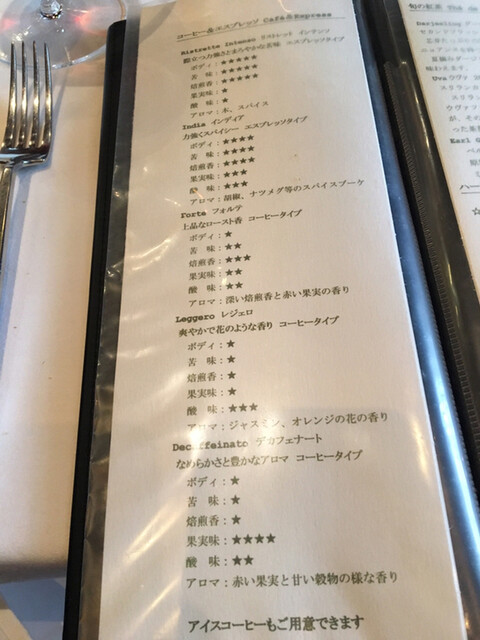 コーヒー＆エスプレッソ Café＆Express
Ristretto Intenso リストレット インテンソ
際立つ力強さとまろやかな苦味 エスプレッソタイプ
ボディ：★★★★★
苦 味：★★★★★
焙煎香：★★★★★
果実味：★
酸 味：★
アロマ：木、スパイス
India インディア
力強くスパイシー エスプレッソタイプ
ボディ：★★★★
苦 味：★★★★
焙煎香：★★★★
果実味：★★★
酸 味：★★★
アロマ：胡椒、ナツメグ等のスパイスブーケ
Forte フォルテ
上品なロースト香 コーヒータイプ
ボディ：★
苦 味：★★
焙煎香：★★★
果実味：★★
酸 味：★★
アロマ：深い焙煎香と赤い果実の香り
Leggero レジェロ
爽やかで花のような香り コーヒータイプ
ボディ：★
苦 味：★
焙煎香：★
果実味：★
酸 味：★★★
アロマ：ジャスミン、オレンジの花の香り
Decaffeinato デカフェナート
なめらかさと豊かなアロマ コーヒータイプ
ボディ：★
苦 味：★
焙煎香：★
果実味：★★★★
酸 味：★★
アロマ：赤い果実と甘い穀物の様な香り
アイスコーヒーもご用意できます
旬の紅茶 Thé de
Darjeeling ダー
セカンドフラッ
味わえま
Uva ウヴァ
スリラン
ウヴァフ
が、その
った茶
Earl G
ハー
☆